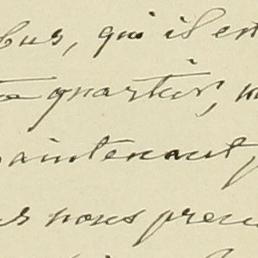 bus, qui il est
quartier,
maintenant,
nous pren